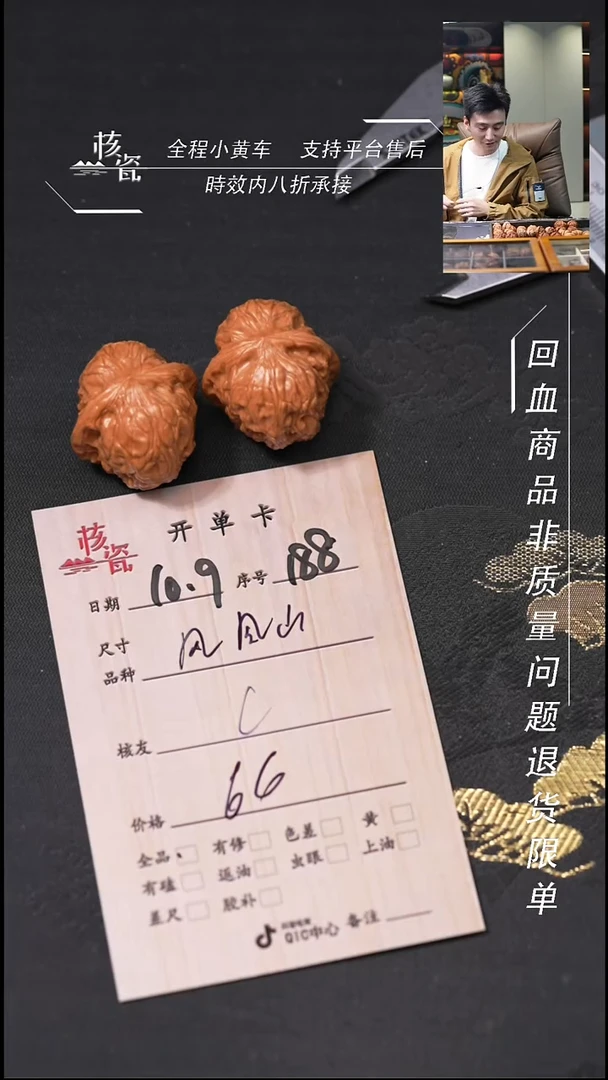 核瓷
全程小黄车 支持平台售后
時效内八折承接
回血商品非质量问题退货限单
核瓷
开单卡
日期 10.9 序号 188
尺寸
品种 凤凰山
核友 C
价格 66
全品 有修 色差 黄
有磕 返油 虫眼 上油
差尺 胶补
QIC中心 备注